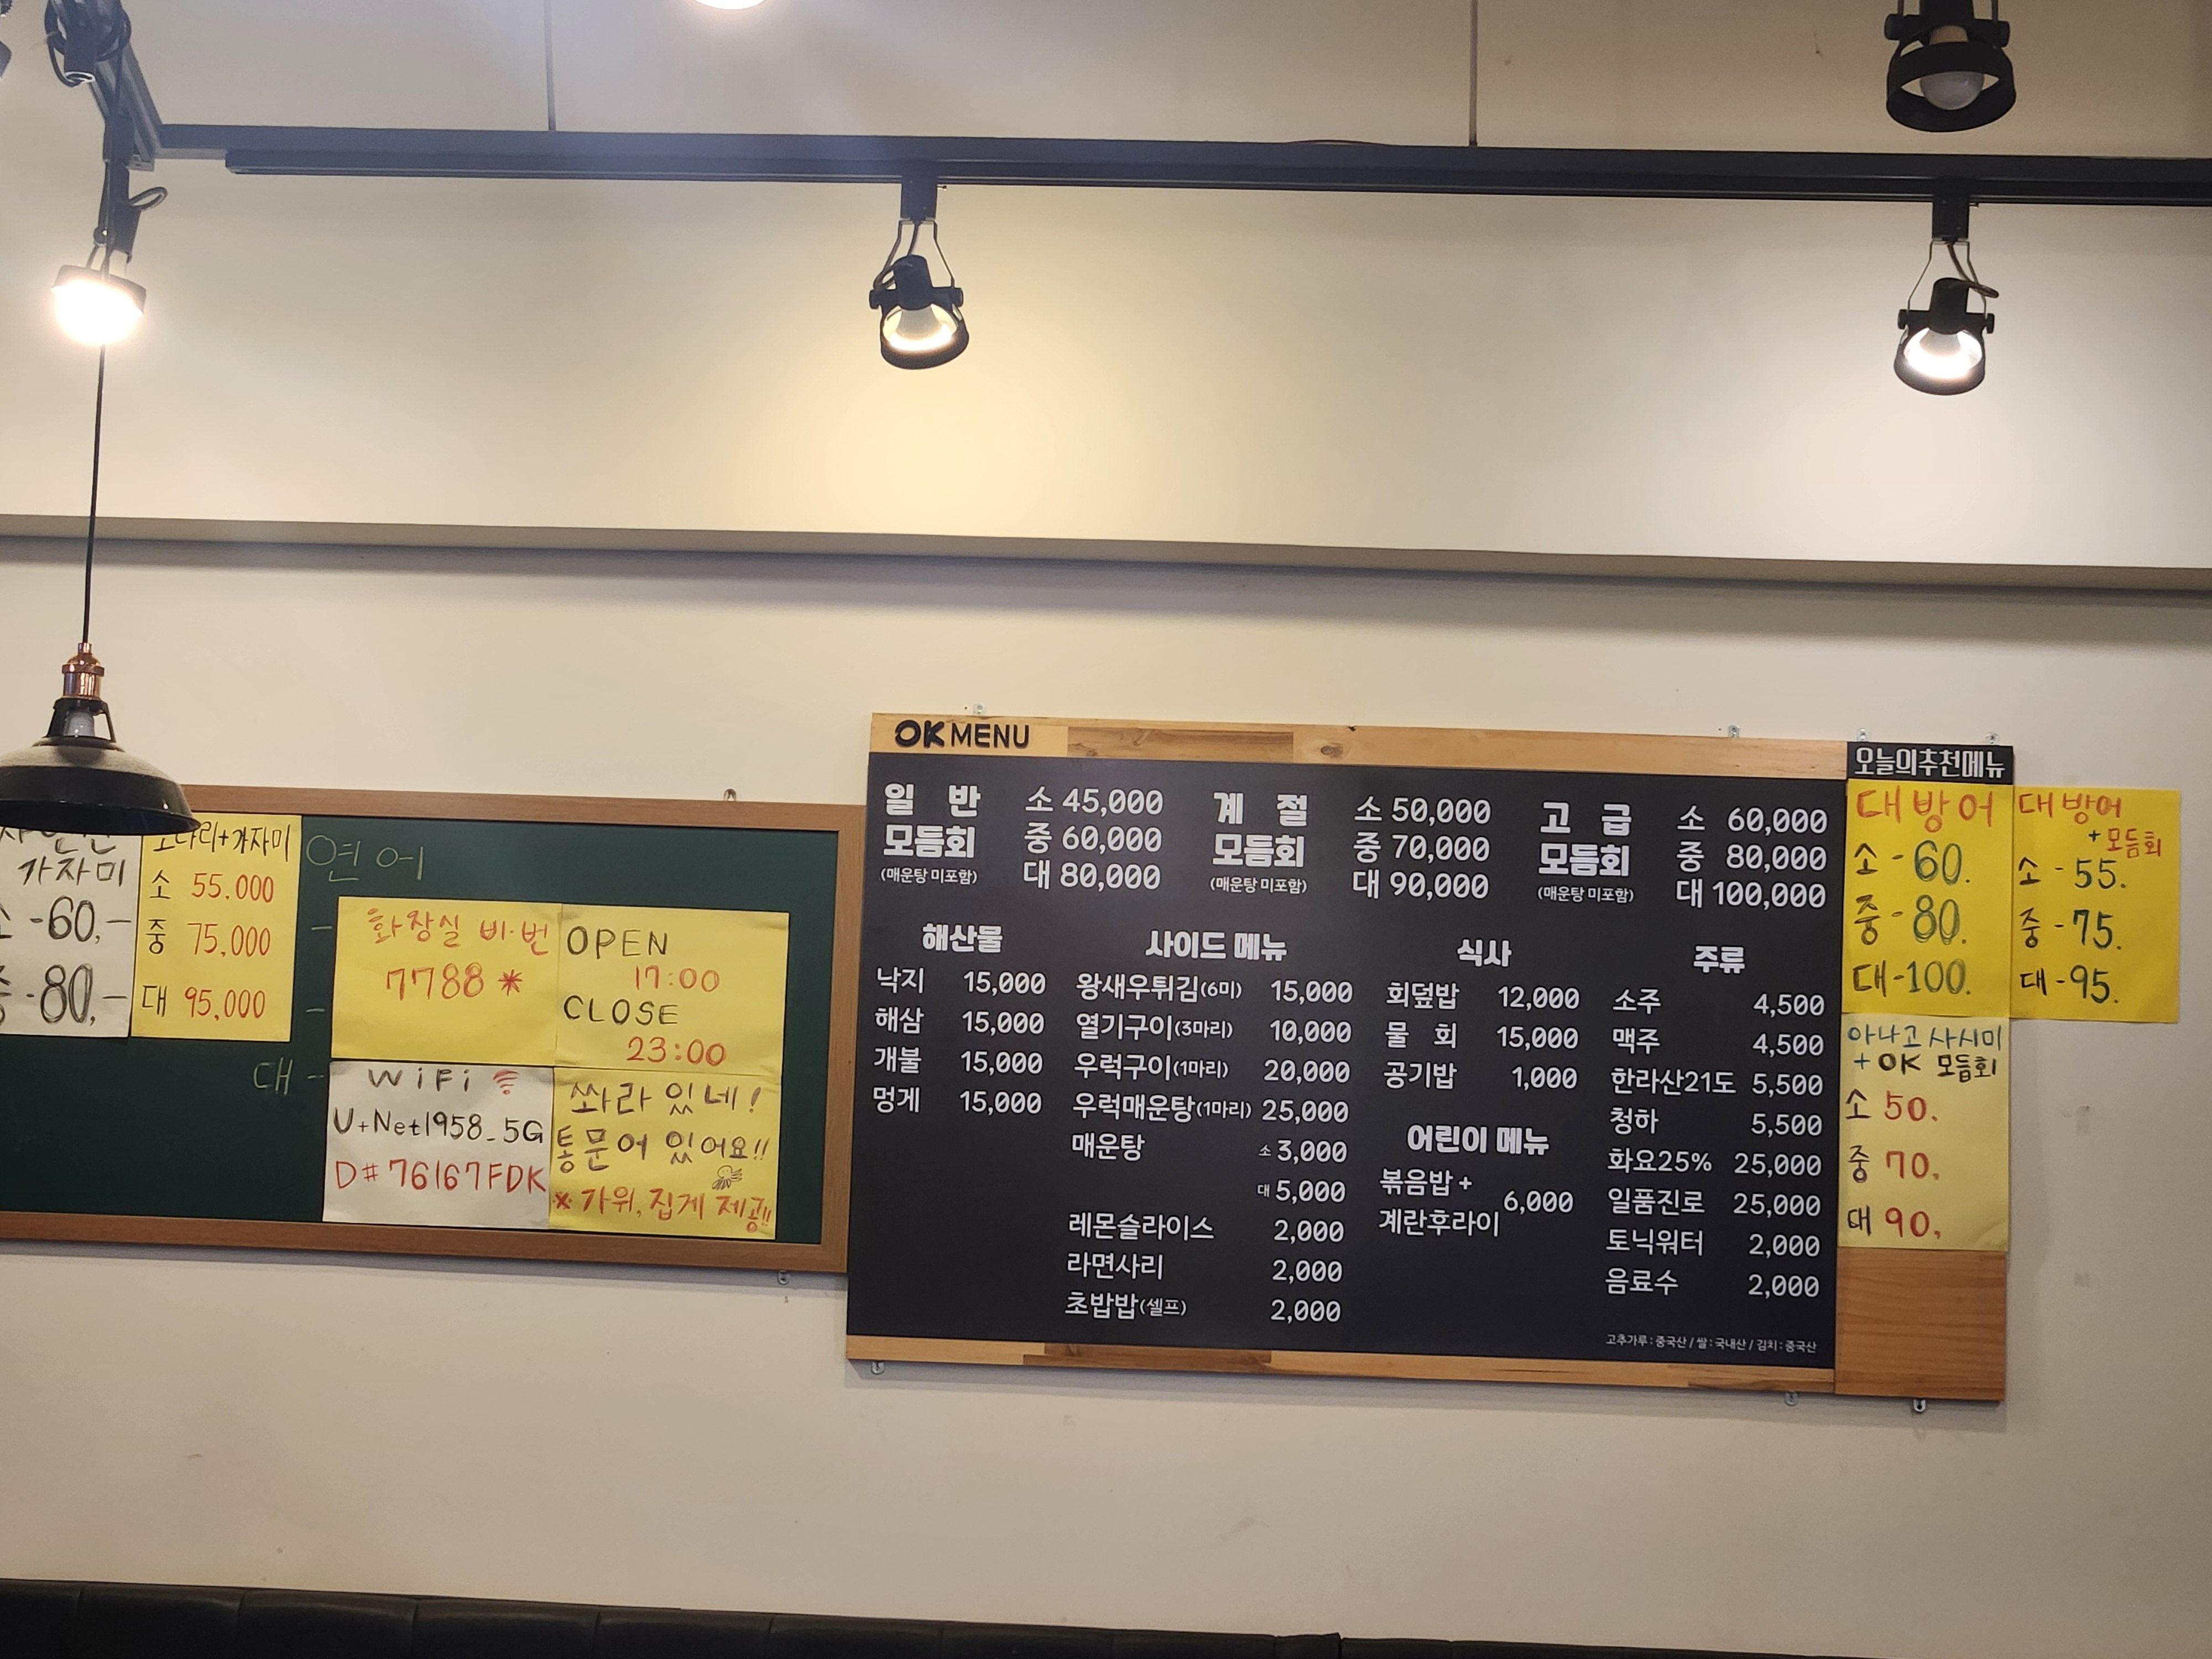 가자미
-60,-
-80,-
+가자미
소 55.000
중 75,000
대 95,000
연어
-
-
대 -
화장실 비·번
7788 *
OPEN
17:00
CLOSE
23:00
WiFi
U+Net1958_5G
D#76167FDK
쏴라 있네!
통문어 있어요!!
※가위, 집게 제공!!
OK MENU
일 반
모듬회
(매운탕 미포함)
소 45,000
중 60,000
대 80,000
계 절
모듬회
(매운탕 미포함)
소 50,000
중 70,000
대 90,000
고 급
모듬회
(매운탕 미포함)
소 60,000
중 80,000
대 100,000
해산물
낙지 15,000
해삼 15,000
개불 15,000
멍게 15,000
사이드 메뉴
왕새우튀김(6미) 15,000
열기구이(3마리) 10,000
우럭구이(1마리) 20,000
우럭매운탕(1마리) 25,000
매운탕 소 3,000
대 5,000
레몬슬라이스 2,000
라면사리 2,000
초밥밥(셀프) 2,000
식사
회덮밥 12,000
물 회 15,000
공기밥 1,000
어린이 메뉴
볶음밥 +
계란후라이 6,000
주류
소주 4,500
맥주 4,500
한라산21도 5,500
청하 5,500
화요25% 25,000
일품진로 25,000
토닉워터 2,000
음료수 2,000
고추가루 : 중국산 / 쌀 : 국내산 / 김치 : 중국산
오늘의추천메뉴
대방어
소 - 60.
중 - 80.
대 - 100.
대방어
+모듬회
소 - 55.
중 - 75.
대 - 95.
아나고 사시미
+ OK 모듬회
소 50.
중 70,
대 90,